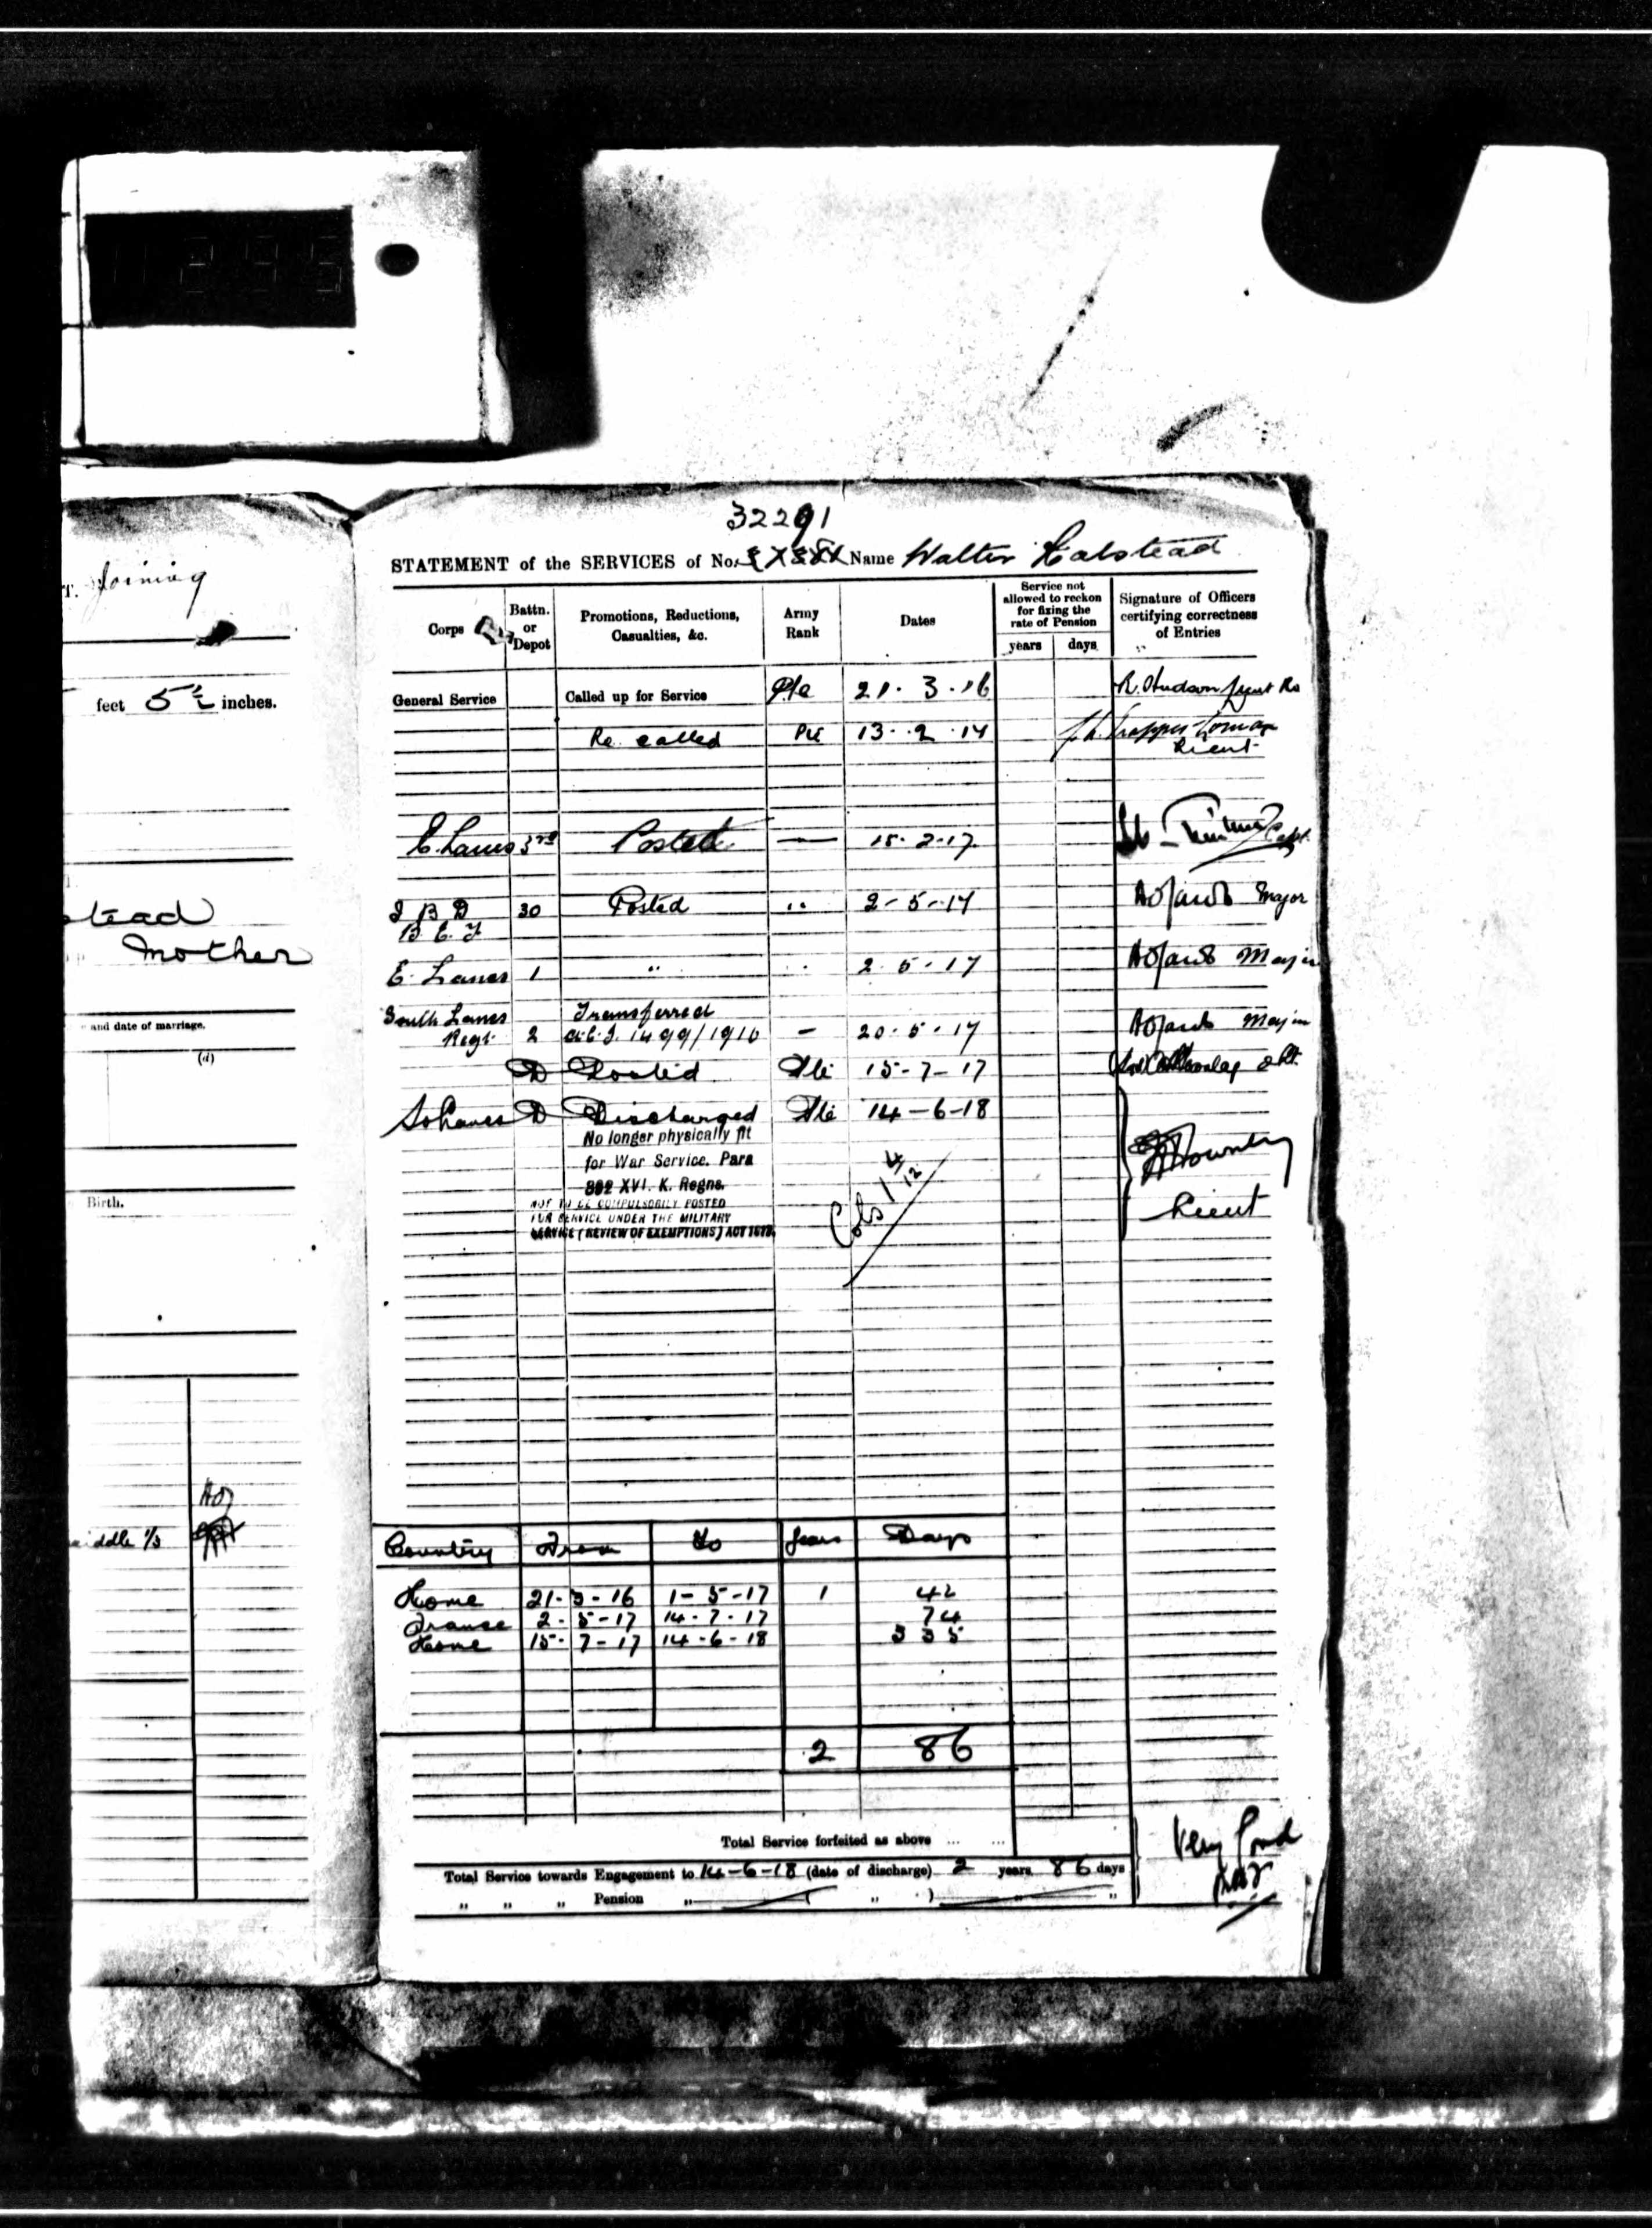 joining
feet 5½ inches.
stead
mother
and date of marriage.
(d)
Birth.
iddle 1/3
32291
STATEMENT of the SERVICES of No. Name Walter Halstead
Corps
Battn. or Depot
Promotions, Reductions, Casualties, &c.
Army Rank
Dates
Service not allowed to reckon for fixing the rate of Pension
years days
Signature of Officers certifying correctness of Entries
General Service Called up for Service Pte 21. 3. 16 R. Hudson Lieut
Re called Pte 13. 2. 17
Lieut
E. Lancs 3rd Posted — 15. 2. 17 Capt.
I B D 30 Posted " 2-5-17 Major
B. E. F
E. Lancs 1 " " 2. 5. 17 Major
South Lancs Transferred
Regt. 2 A.C.I. 1499/1916 — 20. 5. 17 Major
D Posted Pte 15-7-17 2 Lt.
So Lancs D Discharged Pte 14-6-18
No longer physically fit
for War Service. Para
392 XVI. K. Regns.
NOT TO BE COMPULSORILY POSTED
FOR SERVICE UNDER THE MILITARY
SERVICE (REVIEW OF EXEMPTIONS) ACT
Lieut
Country From To Years Days
Home 21-3-16 1-5-17 1 42
France 2-5-17 14-7-17 74
Home 15-7-17 14-6-18 335
2 86
Total Service forfeited as above ... ...
Total Service towards Engagement to 14-6-18 (date of discharge) 2 years 86 days
" " " Pension " ( " ) " "
Very Good